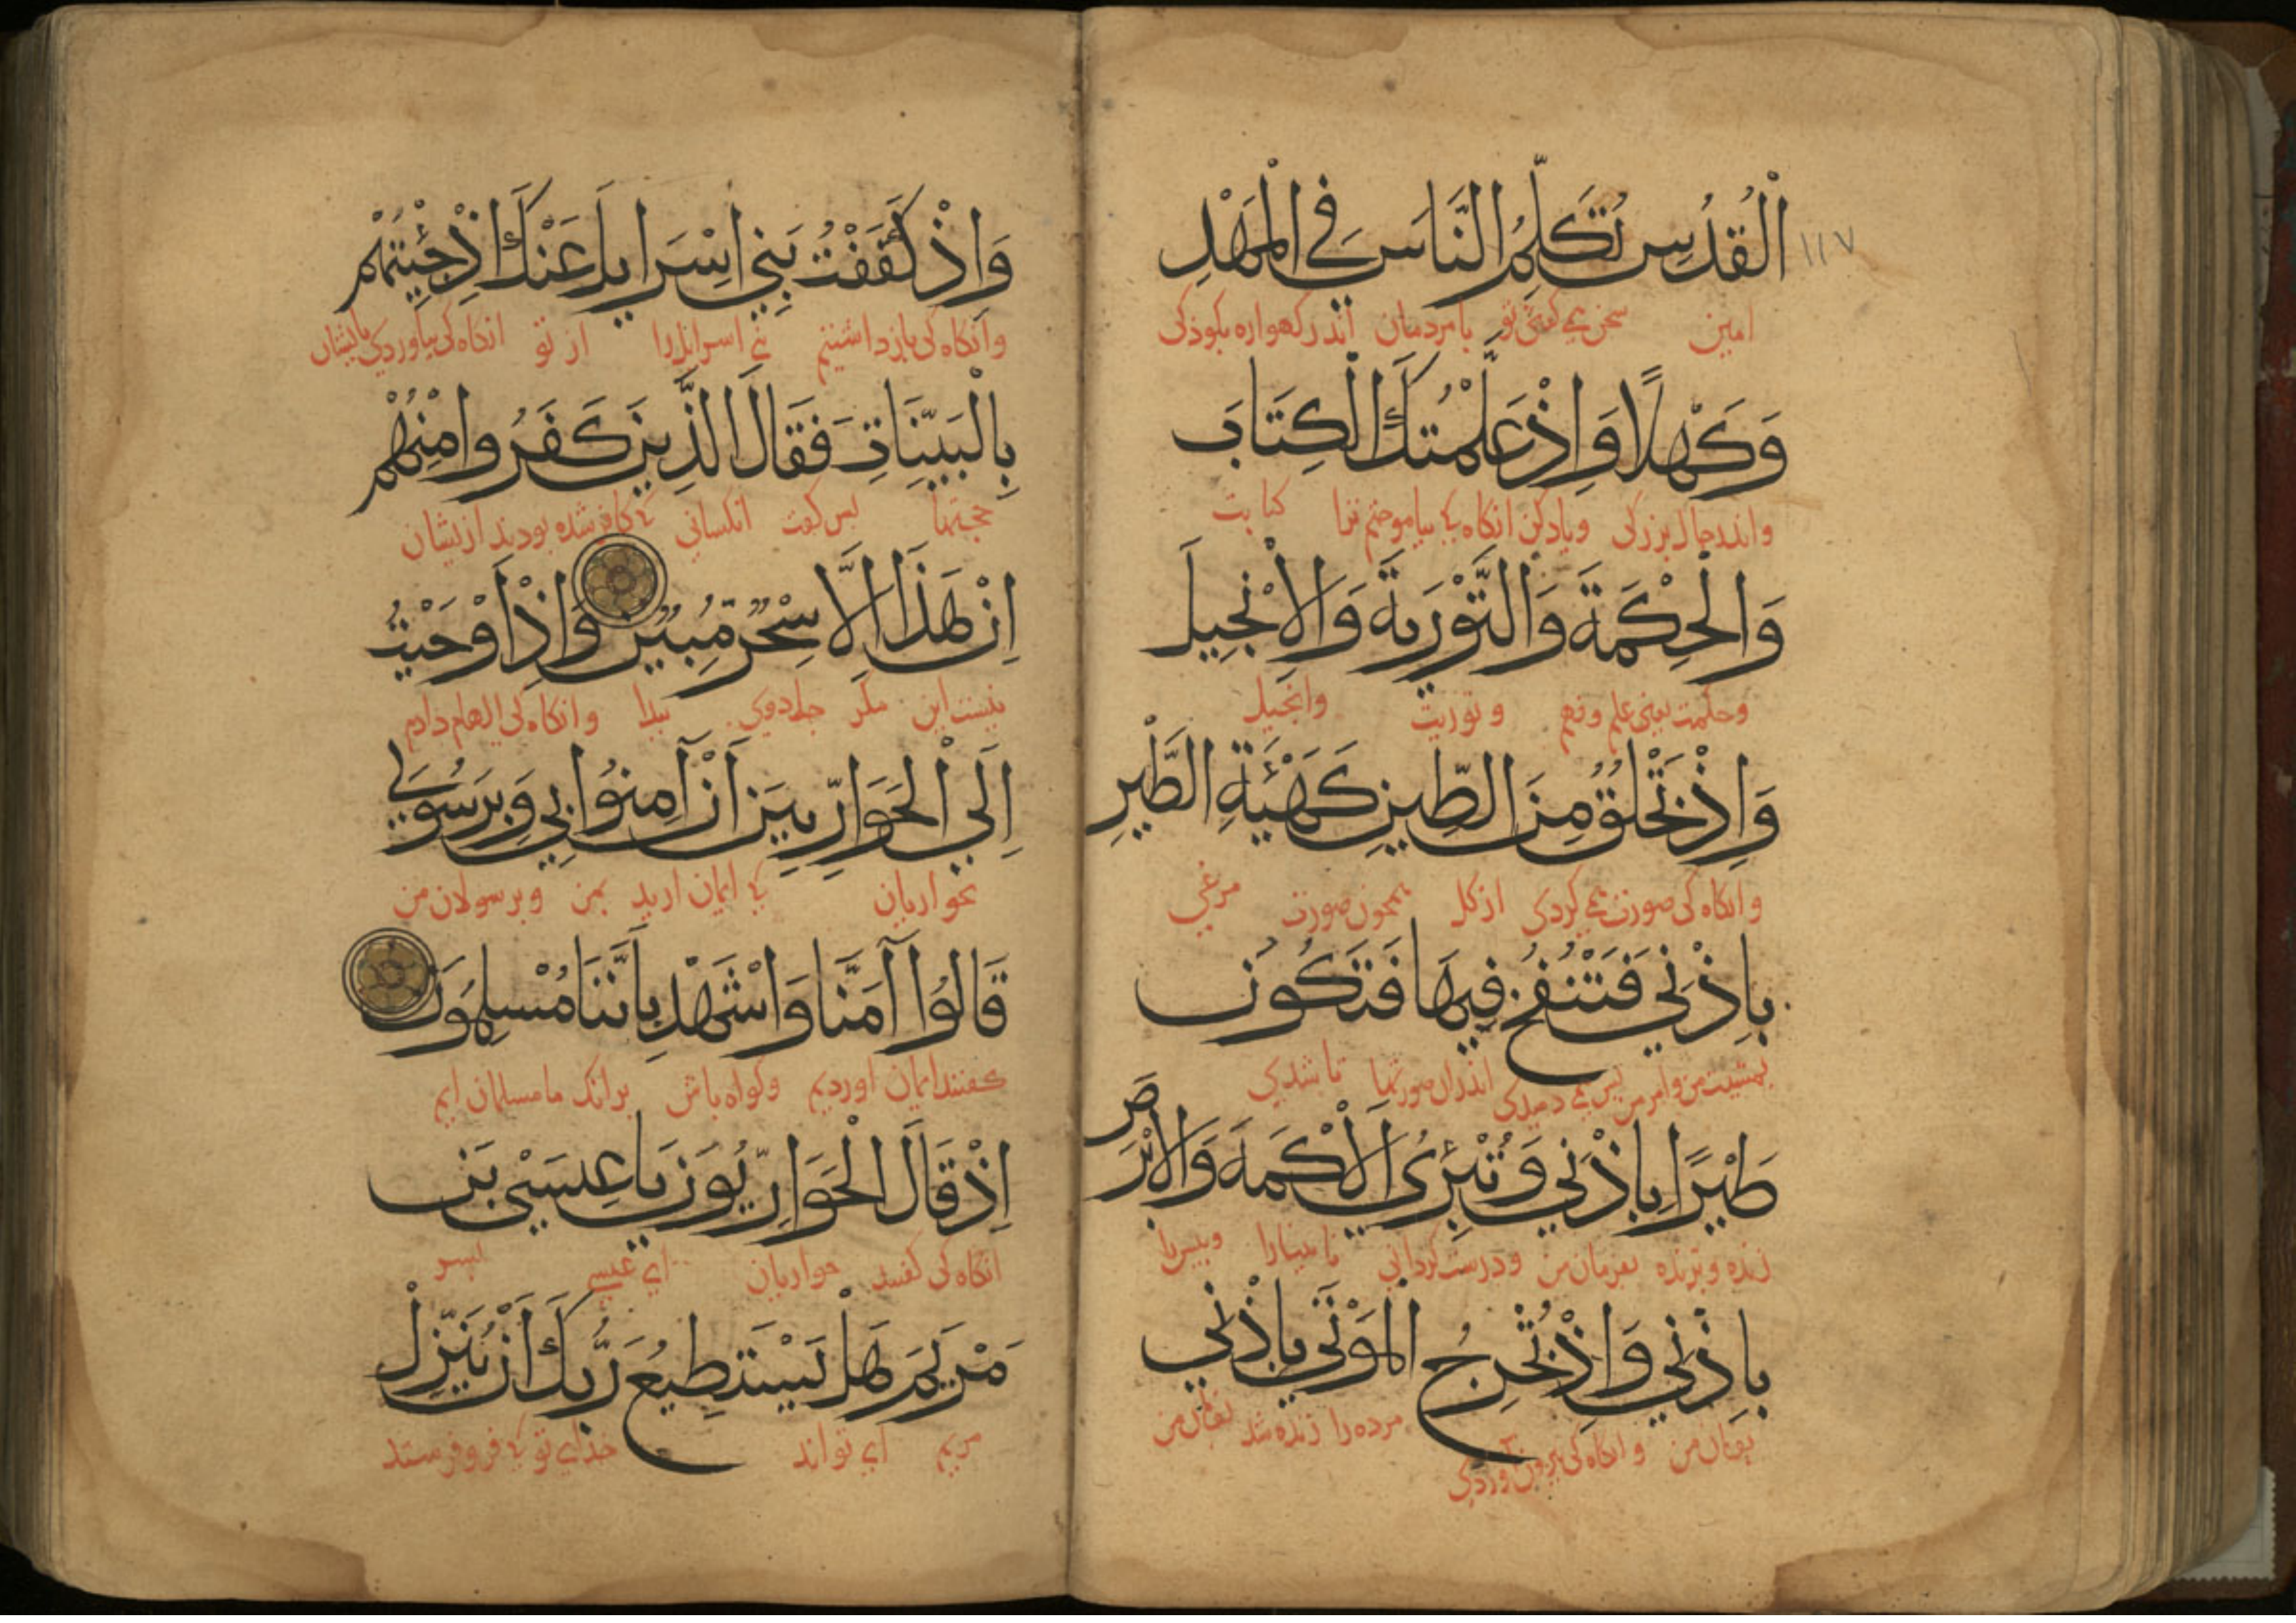 ١١٧
الْقُدُسِ تُكَلِّمُ النَّاسَ فِي الْمَهْدِ
امین سخن می گفتی تو با مردمان اندر کهواره بکوذکی
وَكَهْلًا وَاِذْ عَلَّمْتُكَ الْكِتَابَ
واندر حال بزرکی ویاد کن انکاه که بیاموختم ترا کتابت
وَالْحِكْمَةَ وَالتَّوْرَيةَ وَالْاِنْجِيلَ
وحکمت یعنی علم وفهم وتوریت وانجیل
وَاِذْ تَخْلُقُ مِنَ الطِّينِ كَهَيْئَةِ الطَّيْرِ
وانکاه کی صورت می کردی از کل همچون صورت مرغی
بِاِذْنِي فَتَنْفُخُ فِيهَا فَتَكُونُ
بمشیت من وامر من پس می دمیدی اندران صورتها تا شدی
طَيْرًا بِاِذْنِي وَتُبْرِئُ الْاَكْمَهَ وَالْاَبْرَصَ
زنده وپرنده بفرمان من ودرست کردانی نابینارا وپیس را
بِاِذْنِي وَاِذْ تُخْرِجُ الْمَوْتَى بِاِذْنِي
بفرمان من وانکاه کی بیرون آوردی مرده را زنده شد بفرمان من
وَاِذْ كَفَفْتُ بَنِي اِسْرَايلَ عَنْكَ اِذْ جِئْتَهُمْ
وانکاه کی بازداشتم بنی اسرایل را از تو انکاه کی بیاوردی بایشان
بِالْبَيِّنَاتِ فَقَالَ الَّذِينَ كَفَرُوا مِنْهُمْ
حجتها پس کفت انکسانی که کافر شده بودند ازیشان
اِنْ هَذَا اِلَّا سِحْرٌ مُبِينٌ وَاِذْ اَوْحَيْتُ
نیست این مکر جادوی پیدا وانکاه کی الهام دادم
اِلَى الْحَوَارِيِّينَ اَنْ آمِنُوا بِي وَبِرَسُولِي
بحواریان که ایمان ارید بمن وبرسولان من
قَالُوا آمَنَّا وَاشْهَدْ بِاَنَّنَا مُسْلِمُونَ
کفتند ایمان اوردیم وکواه باش برانک ما مسلمان ایم
اِذْ قَالَ الْحَوَارِيُّونَ يَا عِيسَى بْنَ
انکاه کی کفتند حواریان ای عیسی پسر
مَرْيَمَ هَلْ يَسْتَطِيعُ رَبُّكَ اَنْ يُنَزِّلَ
مریم ای تواند خدای تو که فروفرستد